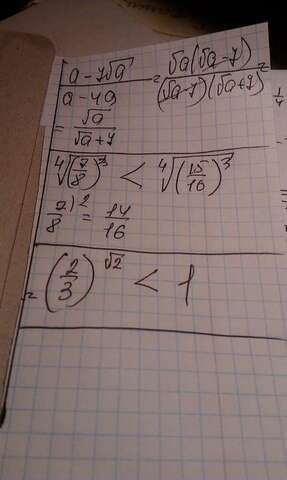 (a - 7√a)/(a - 49) = (√a(√a - 7))/((√a - 7)(√a + 7)) =
= √a/(√a + 7)
⁴√(7/8)³ < ⁴√(15/16)³
7/8 ⁾² = 14/16
(2/3)^√2 < 1